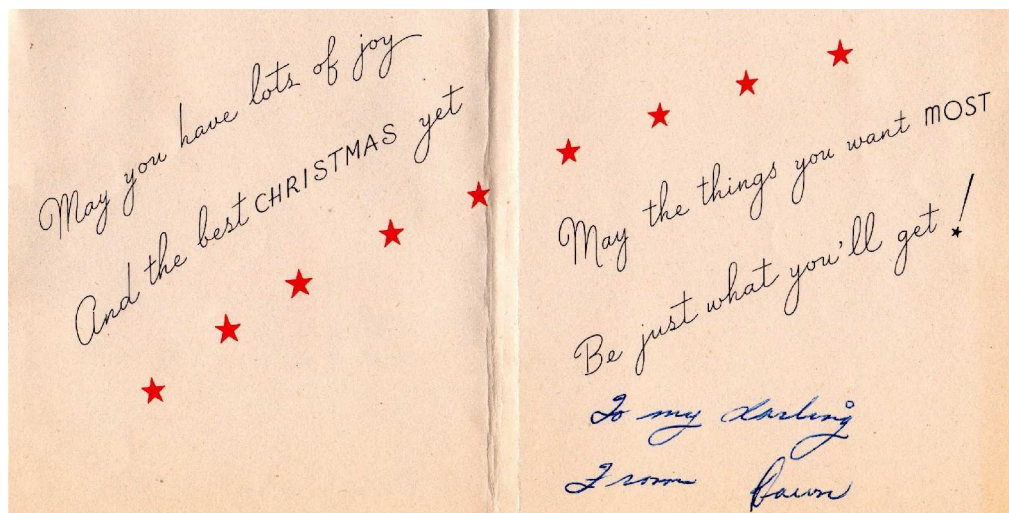 May you have lots of joy
And the best CHRISTMAS yet
May the things you want MOST
Be just what you'll get!
To my darling
From Dawn